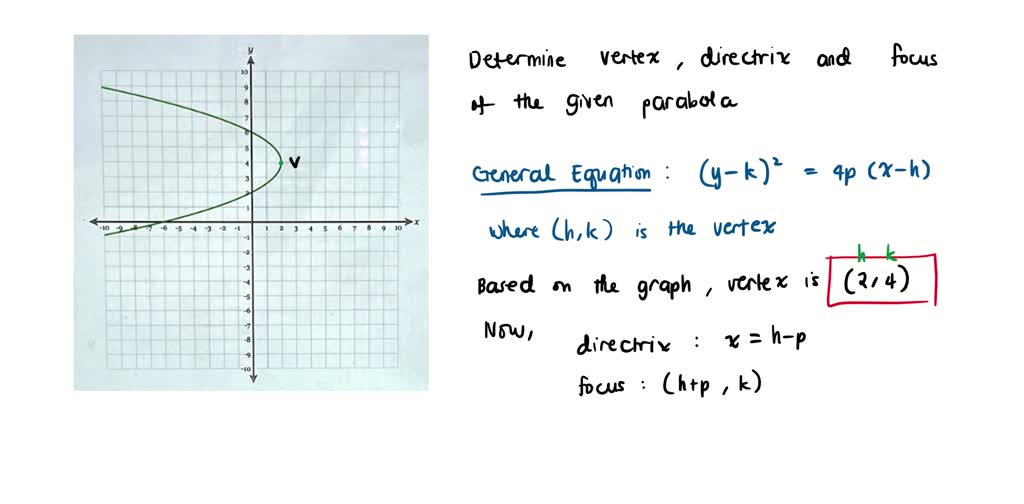 y
10
9
8
7
6
5
4
3
2
1
V
-10 -9 -8 -7 -6 -5 -4 -3 -2 -1 1 2 3 4 5 6 7 8 9 10 x
-1
-2
-3
-4
-5
-6
-7
-8
-9
-10
Determine vertex, directrix and focus
of the given parabola
General Equation : (y-k)² = 4p (x-h)
where (h,k) is the vertex
h k
Based on the graph, vertex is (2,4)
Now,
directrix : x = h-p
focus : (h+p, k)